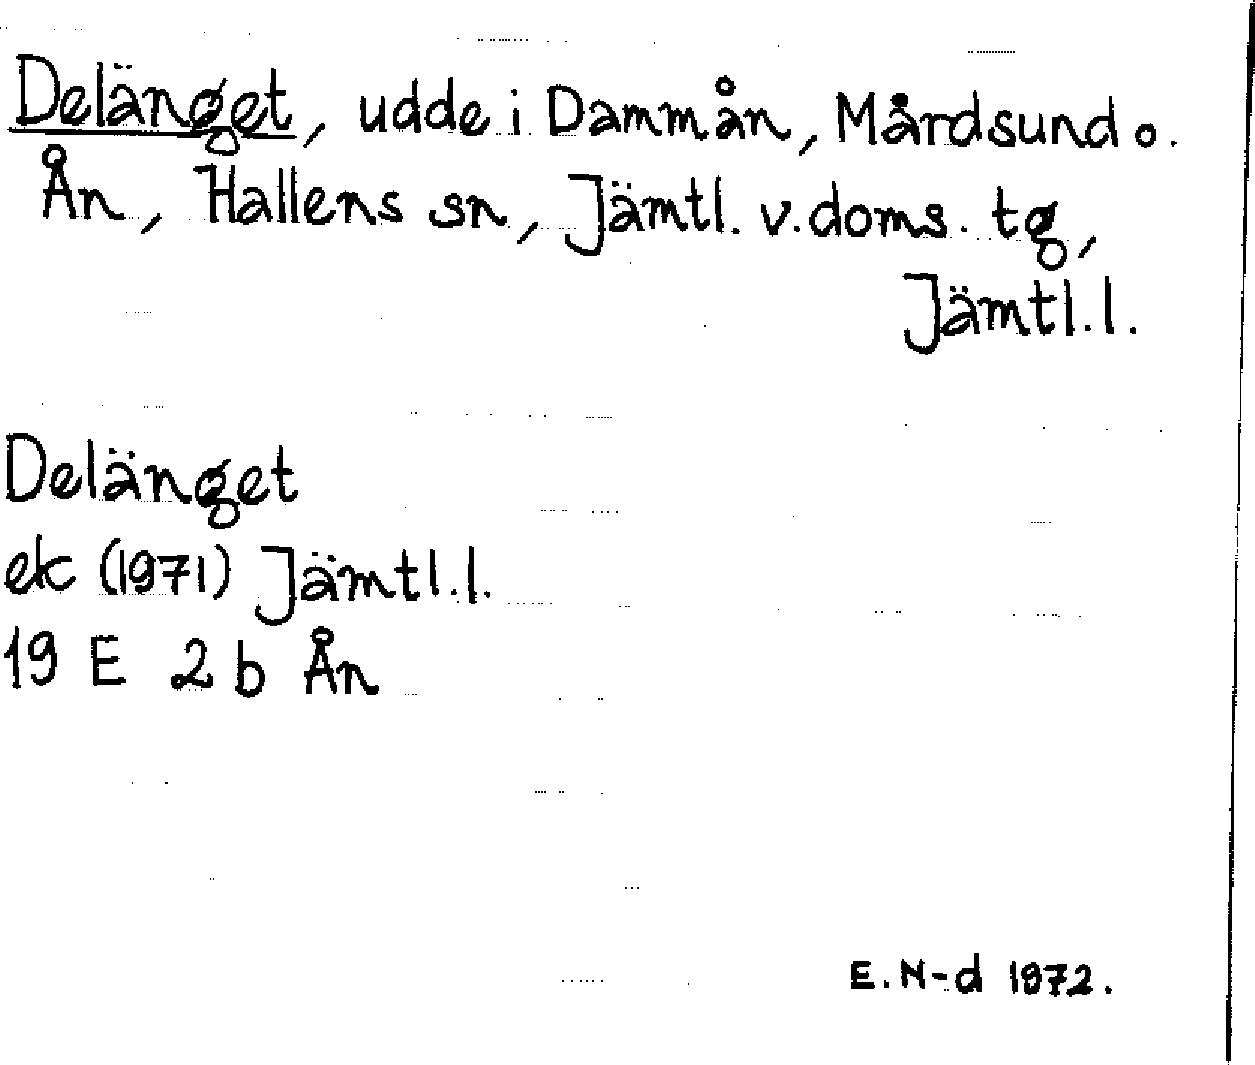 Delänget, udde i Dammån, Mårdsund o.
Ån, Hallens sn, Jämtl. v. doms. tg,
Jämtl. l.
Delänget
ek (1971) Jämtl. l.
19 E 2 b Ån
E. N-d 1972.